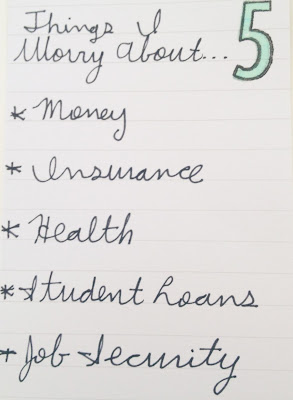 Things I
Worry About... 5
* Money
* Insurance
* Health
* Student Loans
* Job Security